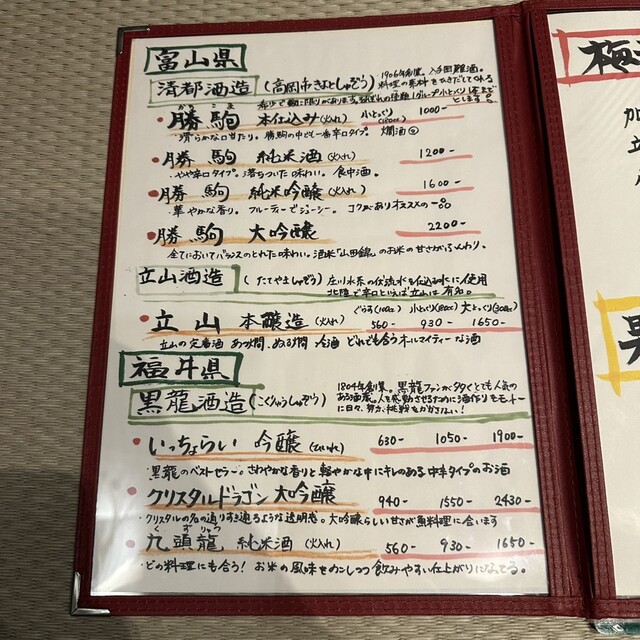 富山県
清都酒造 (高岡市きよとしゅぞう) 1906年創業。入手困難酒。
料理の素材をひきだしてくれる
希少で数に限りがあります。
とします。
かちこま
・勝駒 本仕込み(火入れ) 小とっくり(180cc) 1000-
・清らかな口当たり。勝駒の中でも一番辛口タイプ。燗酒◎
・勝駒 純米酒(火入れ) 1200-
・やや辛口タイプ。落ちついた味わい。食中酒。
・勝駒 純米吟醸(火入れ) 1600-
・華やかな香り。フルーティーでジューシー。コクがありオススメの一品
・勝駒 大吟醸 2200-
全てにおいてバランスのとれた味わい。酒米「山田錦」のお米の甘さがふんわり。
立山酒造 (たてやましゅぞう) 庄川水系の伏流水を仕込み水に使用
北陸で辛口といえば立山は有名。
ぐらす(100cc) 小とっくり(180cc) 大とっくり(300cc)
・立山 本醸造(火入れ) 560- 930- 1650-
立山の定番酒 あつ燗、ぬる燗、冷酒 どれでも合うオールマイティーな酒
福井県
黒龍酒造(こくりゅうしゅぞう) 1804年創業。黒龍ファンが多くとても人気の
ある酒蔵。人を感動させるために酒作りをモットー
に日々、努力、挑戦をかかさない!
・いっちょらい 吟醸(ひいれ) 630- 1050- 1900-
・黒龍のベストセラー。さわやかな香りと軽やかな中にキレのある中辛タイプのお酒
・クリスタルドラゴン 大吟醸 940- 1550- 2430-
・クリスタルの名の通りすき通るような透明感。大吟醸らしい甘さが魚料理に合います
くずりゅう
・九頭龍 純米酒(火入れ) 560- 930- 1650-
・どの料理にも合う!お米の風味をのこしつつ飲みやすい仕上がりになってる。
梅
加
立